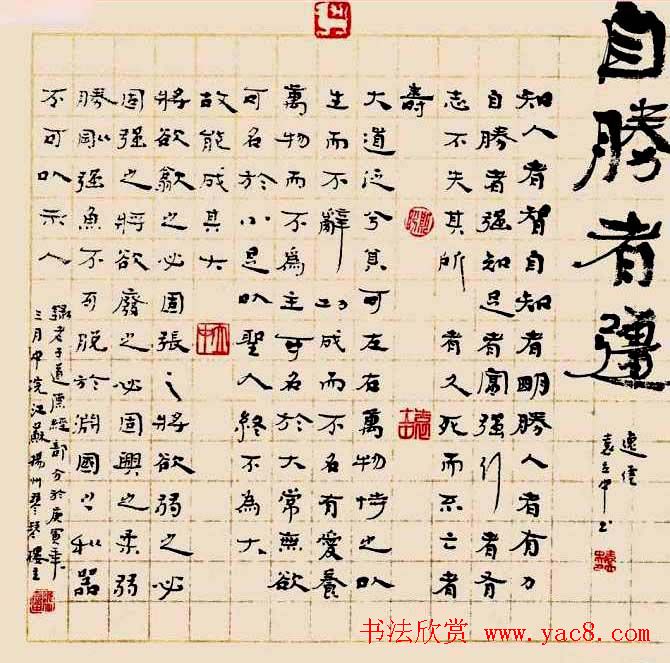 自勝者彊
知人者智自知者明勝人者有力
自勝者强知足者富强行者有
志不失其所者久死而不亡者
壽
大道泛兮其可左右萬物恃之以
生而不辭功成而不名有愛養
萬物而不為主可名於大常無欲
可名於小是以聖人終不為大
故能成其大
將欲歙之必固張之將欲弱之必
固强之將欲廢之必固興之柔弱
勝剛强魚不可脱於淵國之利器
不可以示人
錄老子道德經部分於庚寅年
三月中浣江蘇揚州琴琴樓主
书法欣赏 www.yac8.com